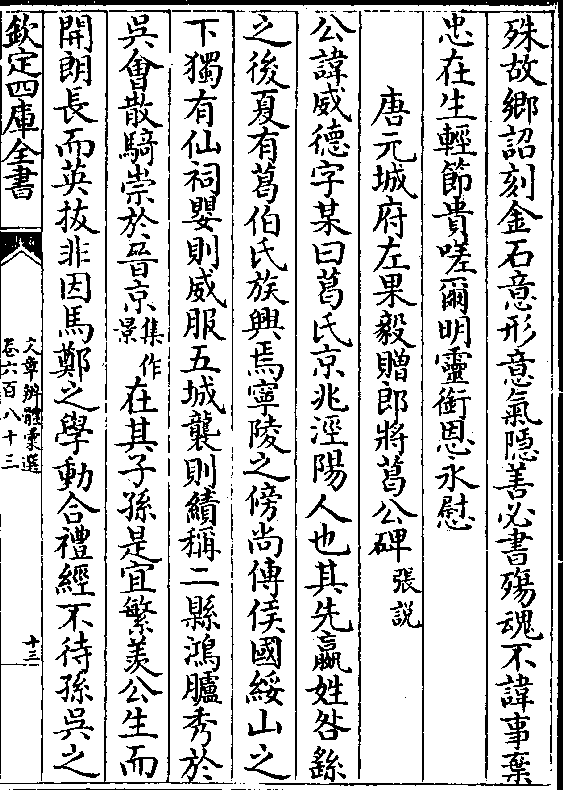 殊故鄉詔刻金石意形意氣隱善必書殤魂不諱事棄
忠在生輕節貴嗟爾明靈銜恩永慰
唐元城府左果毅贈郎將葛公碑 張説
公諱威德字某曰葛氏京兆涇陽人也其先嬴姓咎繇
之後夏有葛伯氏族興焉寧陵之傍尚傳侯國綏山之
下獨有仙祠嬰則威服五城襲則績稱二縣鴻臚秀於
吳會散騎崇於晉京集作景在其子孫是宜繁羡公生而
開朗長而英拔非因馬鄭之學動合禮經不待孫吳之
欽定四庫全書
文章辨體彙選
卷六百八十三
十三